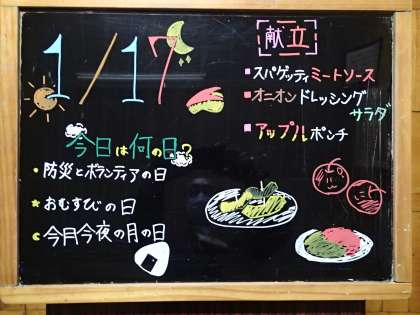 1/17
今日は何の日?
防災とボランティアの日
おむすびの日
今月今夜の月の日
献立
スパゲッティミートソース
オニオンドレッシング
サラダ
アップルポンチ